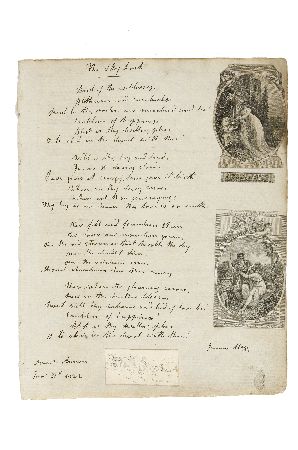 The Sky Lark
Bird of the wilderness,
Blithesome and cumberless,
Sweet be thy matin o'er moorland and lea
Emblem of happiness,
Blest is thy dwelling place,
O to abide in the desert with thee!
Wild is thy lay and loud,
Far in the downy cloud
Love gives it energy, love gave it birth
Where on thy dewy wing
Where art thou journeying
Thy lay is in heaven thy love is on earth
O'er fell and fountain sheen
O'er moor and mountain green
O'er the red streamer that heralds the day
Over the cloudlet dim
Over the rainbow's rim
Musical cherub soar away
Then, when the gloaming comes,
Low in the heather blooms
Sweet will thy welcome and bed of love be
Emblem of happiness!
Blest is thy dwelling place
O to abide in the desert with thee!
James Hogg